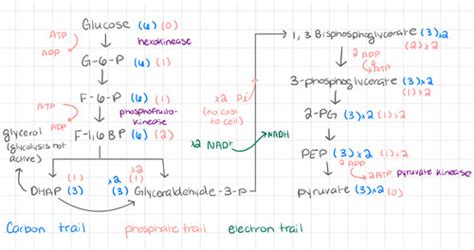 Glucose (6) (0)
ATP
ADP
hexokinase
G-6-P (6) (1)
F-6-P (6) (1)
ATP
ADP
phosphofructo-
kinase
F-1,6BP (6) (2)
glycerol
(glycolysis not
active)
DHAP (3)
(1)
x2
(3)
x2
(1)
Glyceraldehyde-3-p
x2 Pi
(no cost
to cell)
x2 NAD+
NADH
1, 3 Bisphosphoglycerate (3)x2
(2)x2
2 ADP
2 ATP
3-phosphoglycerate (3)x2
(1)x2
2-PG (3)x2 (1)x2
PEP (3)x2 (1)x2
2 ADP
2 ATP
pyruvate kinase
pyruvate (3)x2 (0)
Carbon trail
phosphate trail
electron trail